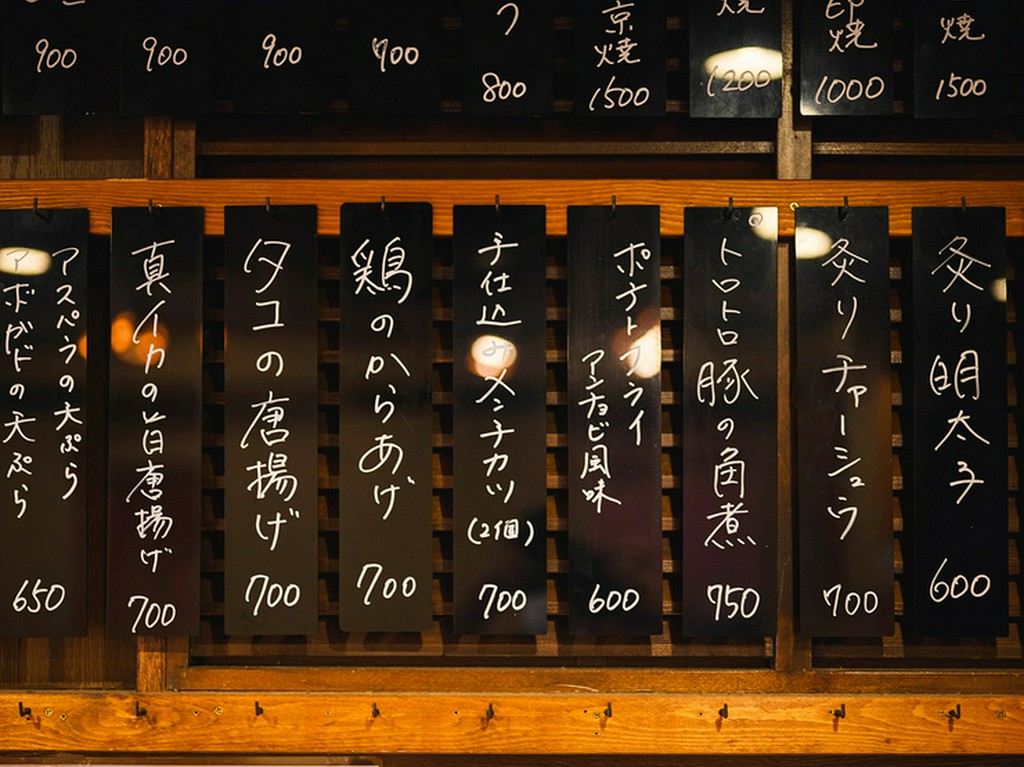 焼
1500
印焼
1000
焼
1200
京焼
1500
つ
800
900
900
900
炙り明太子
600
炙りチャーシュウ
700
トロトロ豚の角煮
750
ポテトフライ
アンチョビ風味
600
手仕込みメンチカツ
(2個)
700
鶏のからあげ
700
タコの唐揚げ
700
真イカの旨唐揚げ
700
アスパラの天ぷら
アボガドの天ぷら
650